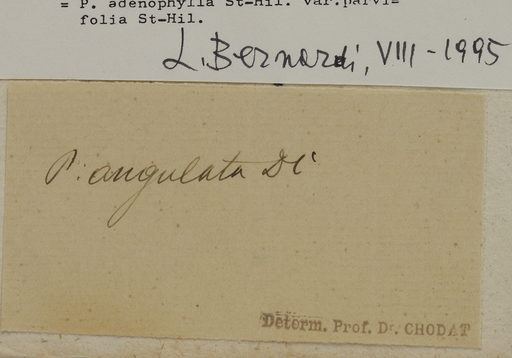 = P. adenophylla St-Hil. var.parvi=
folia St-Hil.
L. Bernardi, VIII-1995
P. angulata DC
Determ. Prof. Dr. CHODAT